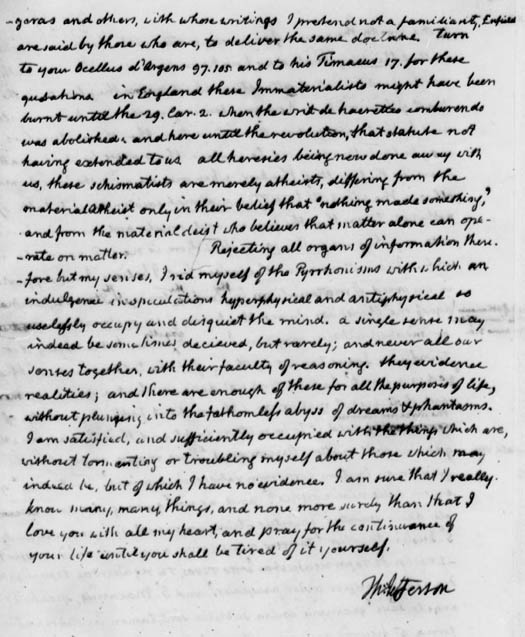 -goras and others, with whose writings I pretend not a familiarity, Enfield
are said by those who are, to deliver the same doctrine. turn
to your Ocellus d'Argens 97.105. and to his Timaeus 17. for these
quotations. in England these Immaterialists might have been
burnt until the 29. Car. 2. when the writ de haeretico comburendo
was abolished: and here until the revolution, that statute not
having extended to us. all heresies being now done away with
us, these schismatists are merely atheists, differing from the
material Atheist only in their belief that "nothing made something,"
and from the material deist who believes that matter alone can ope-
-rate on matter.
Rejecting all organs of information there-
fore but my senses, I rid myself of the Pyrrhonisms with which an
indulgence in speculations hyperphysical and antiphysical so
uselessly occupy and disquiet the mind. a single sense may
indeed be sometimes decieved, but rarely; and never all our
senses together, with their faculty of reasoning. they evidence
realities; and there are enough of these for all the purposes of life,
without plunging into the fathomless abyss of dreams & phantasms.
I am satisfied, and sufficiently occupied with the things which are,
without tormenting or troubling myself about those which may
indeed be, but of which I have no evidence. I am sure that I really
know many, many, things, and none more surely than that I
love you with all my heart, and pray for the continuance of
your life until you shall be tired of it yourself.
Th: Jefferson